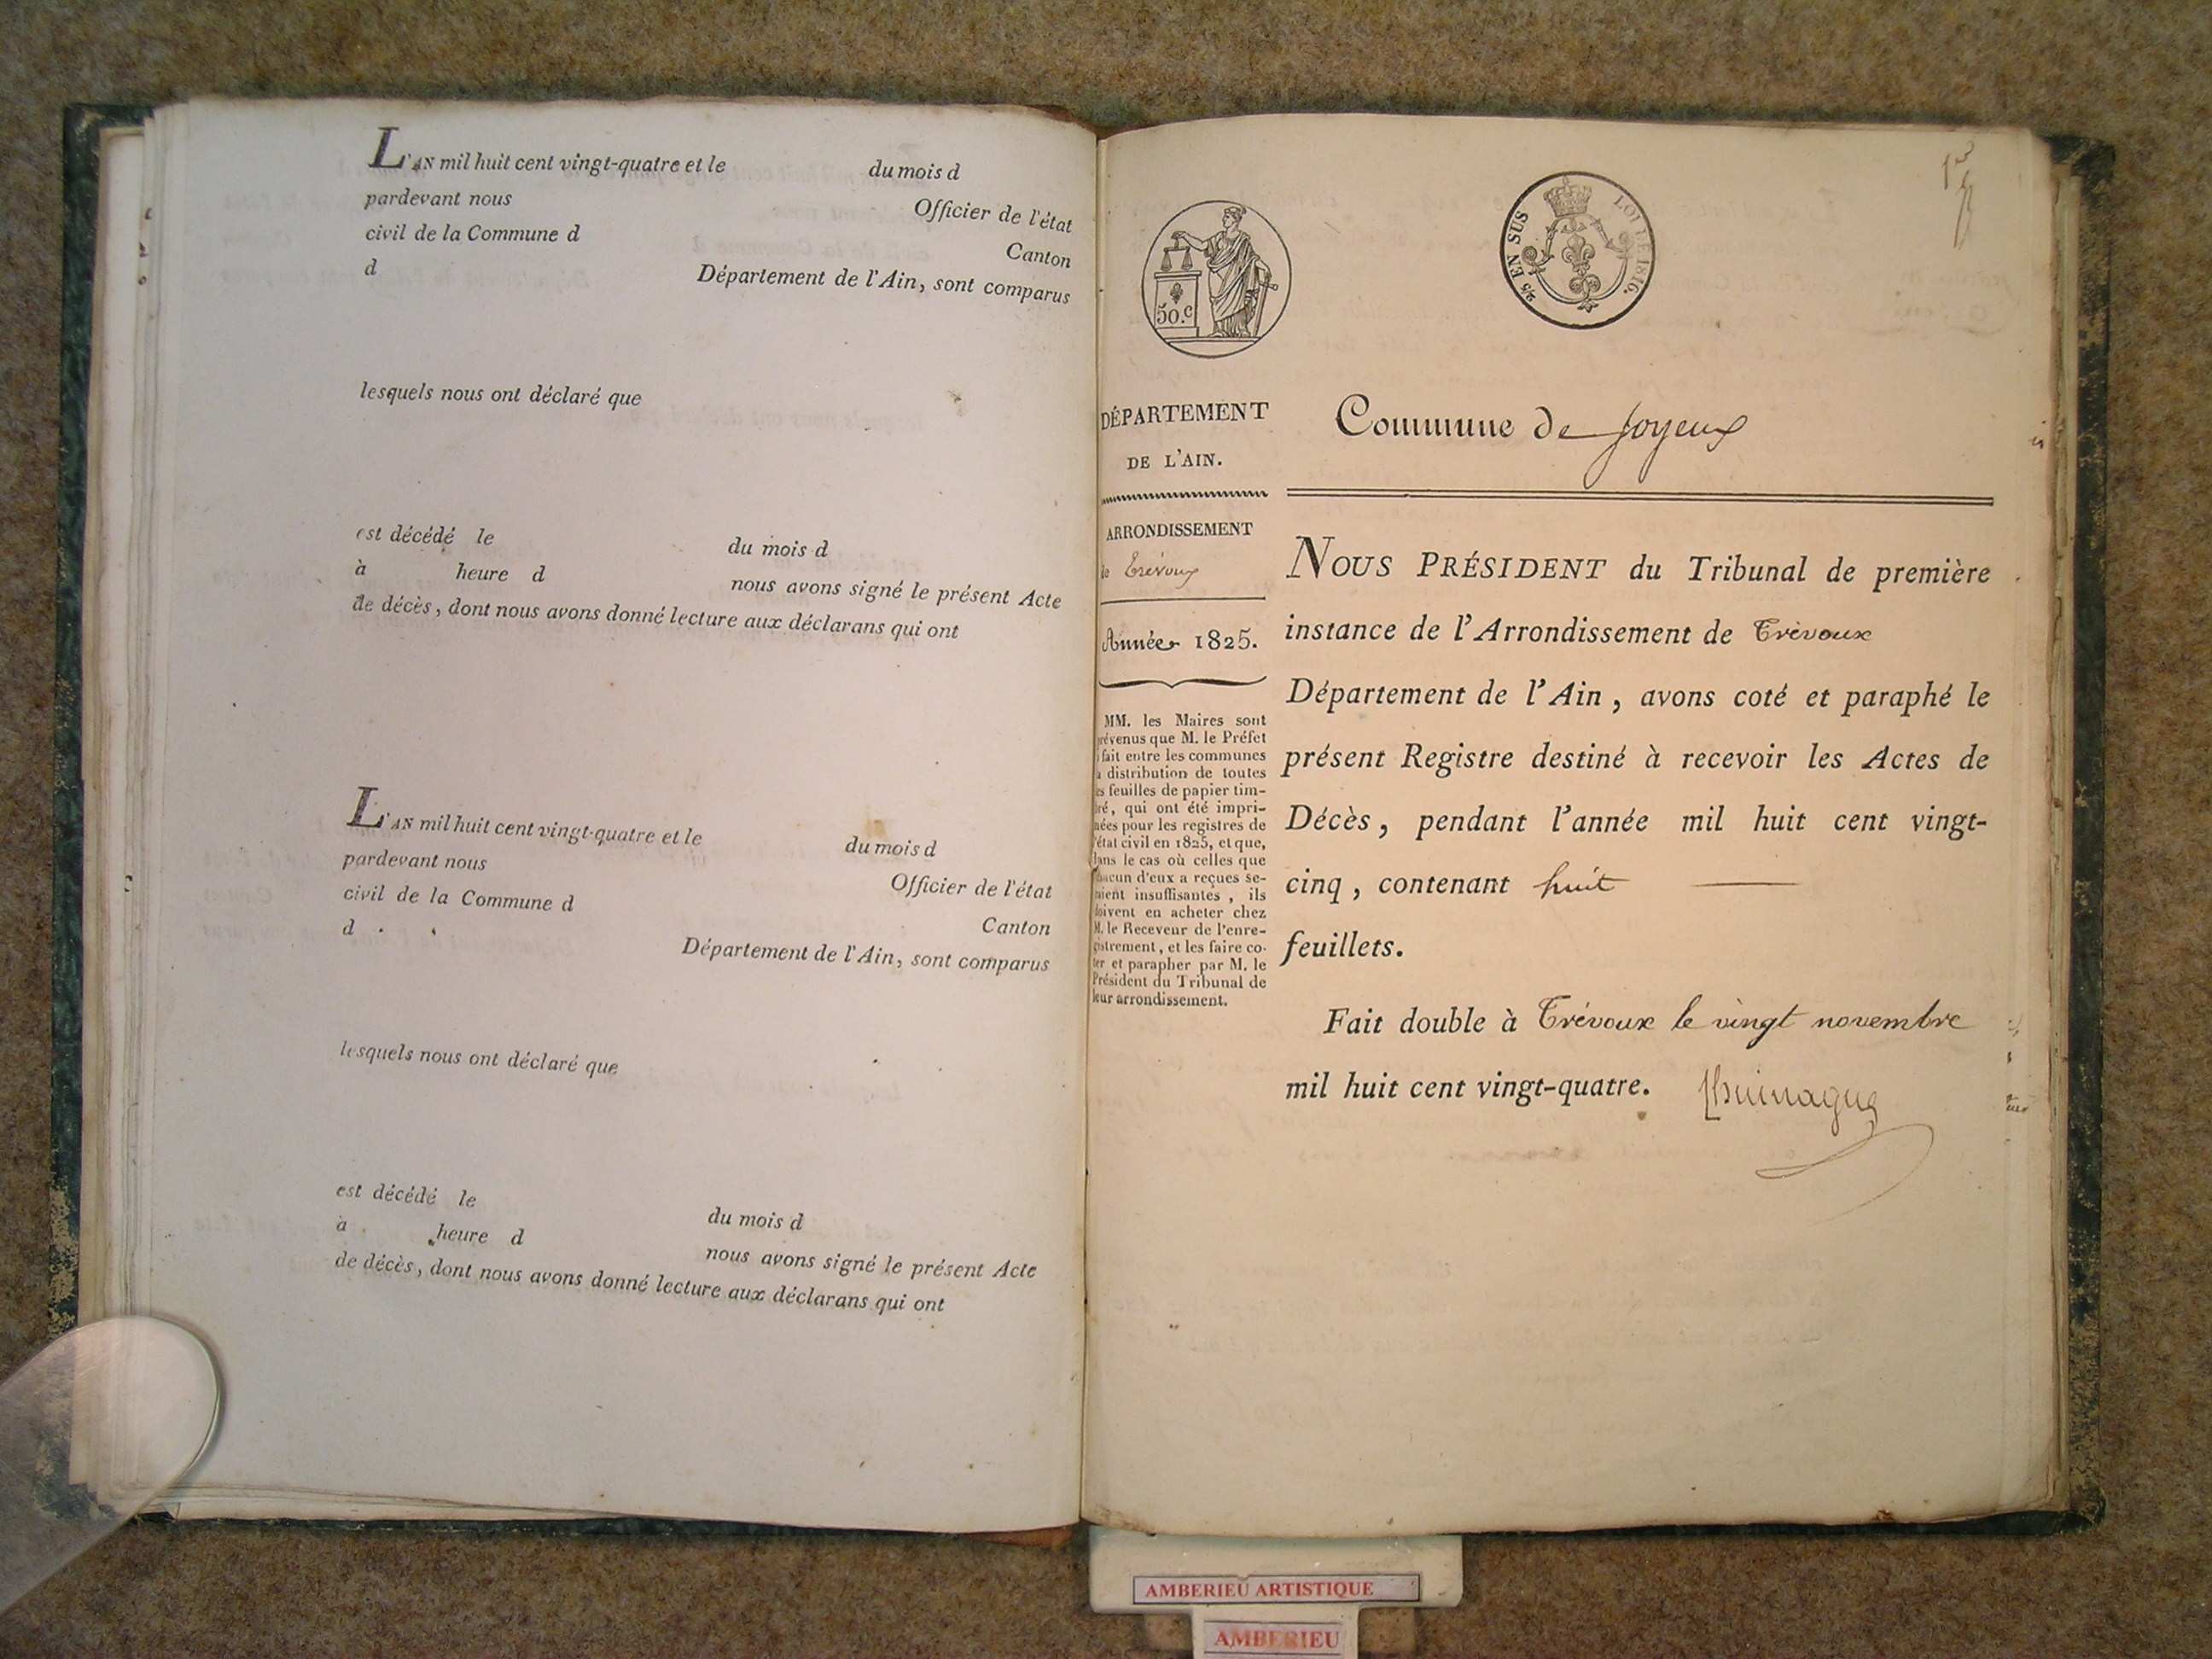 L'AN mil huit cent vingt-quatre et le du mois d
pardevant nous Officier de l'état
civil de la Commune d Canton
d Département de l'Ain, sont comparus
lesquels nous ont déclaré que
est décédé le du mois d
à heure d nous avons signé le présent Acte
de décès, dont nous avons donné lecture aux déclarans qui ont
L'AN mil huit cent vingt-quatre et le du mois d
pardevant nous Officier de l'état
civil de la Commune d Canton
d Département de l'Ain, sont comparus
lesquels nous ont déclaré que
est décédé le du mois d
à heure d nous avons signé le présent Acte
de décès, dont nous avons donné lecture aux déclarans qui ont
50.c
2/5 EN SUS
LOI DE 1816.
DÉPARTEMENT
DE L'AIN.
ARRONDISSEMENT
de Trévoux
Année 1825.
MM. les Maires sont
prévenus que M. le Préfet
fait entre les communes
la distribution de toutes
les feuilles de papier tim-
bré, qui ont été impri-
mées pour les registres de
l'état civil en 1825, et que,
dans le cas où celles que
chacun d'eux a reçues se-
raient insuffisantes, ils
doivent en acheter chez
M. le Receveur de l'enre-
gistrement, et les faire co-
ter et parapher par M. le
Président du Tribunal de
leur arrondissement.
Commune de Joyeux
NOUS PRÉSIDENT du Tribunal de première
instance de l'Arrondissement de Trévoux
Département de l'Ain, avons coté et paraphé le
présent Registre destiné à recevoir les Actes de
Décès, pendant l'année mil huit cent vingt-
cinq, contenant huit
feuillets.
Fait double à Trévoux le vingt novembre
mil huit cent vingt-quatre.
AMBERIEU ARTISTIQUE
AMBERIEU